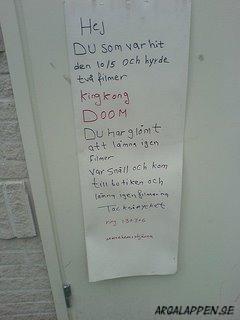 Hej
DU som var hit
den 10/5 och hyrde
två filmer
Kingkong
DOOM
DU har glömt
att lämna igen
filmer
var snäll och kom
till botiken och
lämna igen filmerna
Tack så mycket
ring
ARGALAPPEN.SE